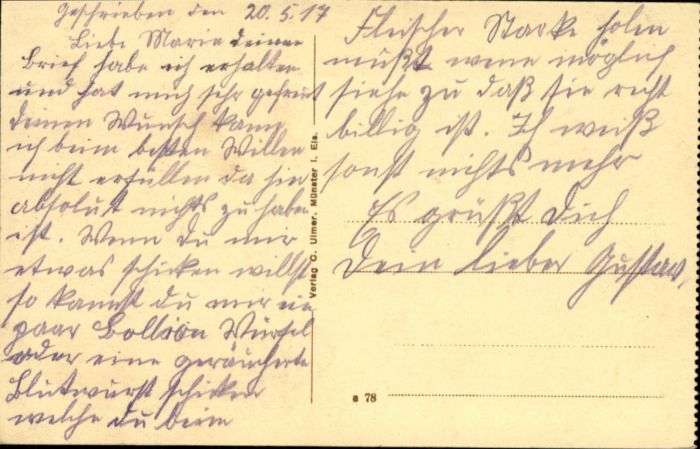 Geschrieben den 20.5.17
Liebe Marie deinen
Brief habe ich erhalten
und hat mich sehr gefreut
deinen Wunsch kann
ich beim besten Willen
nicht erfüllen da hir
absolut nichts zu habe
ist. Wenn du mir
etwas schicken willst
so kannst du mir ein
paar Bollion Würfel
oder eine geräucherte
Blutwurst schicken
welche du beim
Verlag C. Ulmer, Münster i. Els.
Fleischer Starke holen
mußt wenn möglich
siehe zu daß sie recht
billig ist. Ich weiß
sonst nichts mehr
Es grüßt Dich
Dein lieber Gustav,
a 78